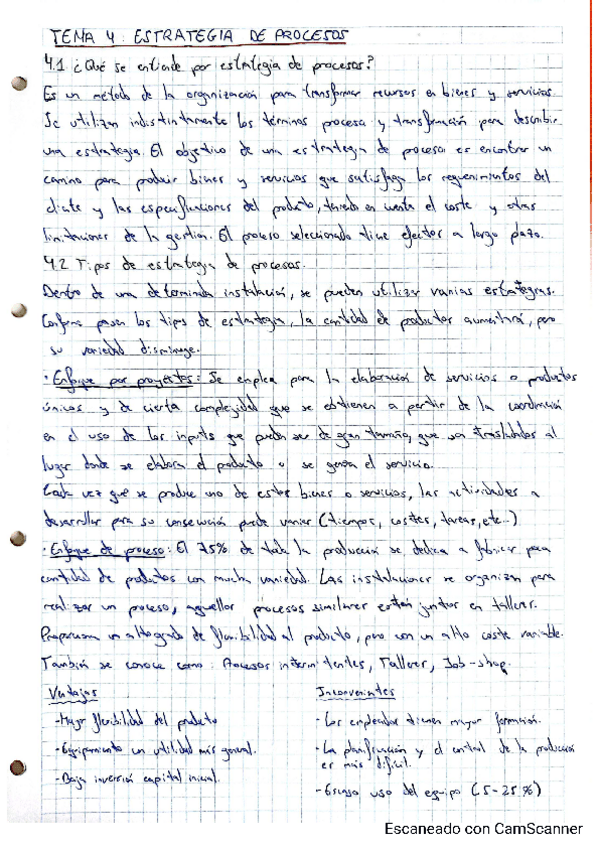 TEMA 4: ESTRATEGIA DE PROCESOS
4.1 ¿Qué se entiende por estrategia de procesos?
Es un método de la organización para transformar recursos en bienes y servicios
Se utilizan indistintamente los términos proceso y transformación para describir
una estrategia. El objetivo de una estrategia de proceso es encontrar un
camino para producir bienes y servicios que satisfaga los requerimientos del
cliente y las especificaciones del producto, teniendo en cuenta el coste y otras
limitaciones de la gestion. El proceso seleccionado tiene efectos a largo plazo.
4.2 Tipos de estrategia de procesos.
Dentro de una determinada instalación, se pueden utilizar varias estrategias.
Conforme pasan los tipos de estrategia, la cantidad de productos aumentará, pero
su variedad disminuye.
· Enfoque por proyectos: Se emplea para la elaboración de servicios o productos
únicos y de cierta complejidad que se obtienen a partir de la coordinación
en el uso de los inputs que pueden ser de gran tamaño, que son trasladados al
lugar donde se elabora el producto o se genera el servicio.
Cada vez que se produce uno de estos bienes o servicios, las actividades a
desarrollar para su consecución puede variar (tiempos, costes, tareas, etc...)
· Enfoque de proceso: El 75% de toda la producción se dedica a fabricar poca
cantidad de productos con mucha variedad. Las instalaciones se organizan para
realizar un proceso, aquellos procesos similares están juntos en talleres.
Proporciona un alto grado de flexibilidad al producto, pero con un alto coste variable.
También se conoce como: Procesos intermitentes, Talleres, Job-shop.
Ventajas
-Mayor flexibilidad del producto
-Equipamiento con utilidad más general.
-Baja inversión capital inicial.
Inconvenientes
-Los empleados tienen mayor formación.
-La planificación y el control de la producción
es más difícil.
-Escaso uso del equipo (5-25%)
Escaneado con CamScanner